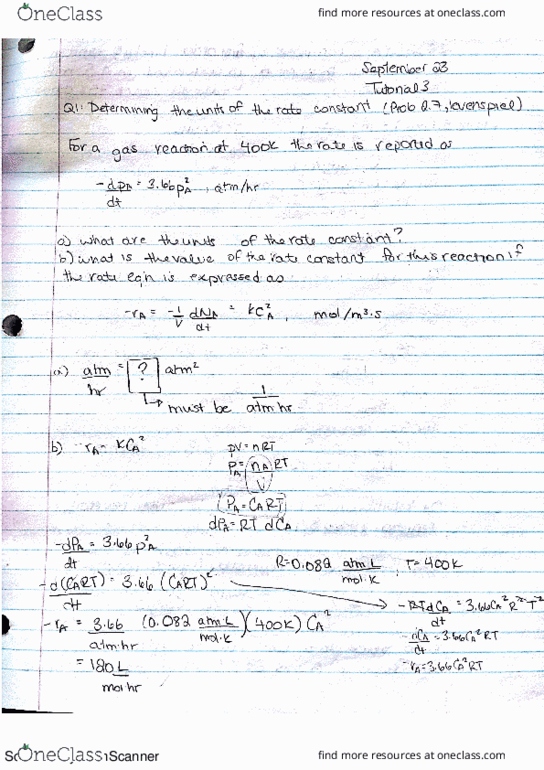 OneClass find more resources at oneclass.com
September 23
Tutorial 3
Q1: Determining the units of the rate constant (Prob 2.7, Levenspiel)
For a gas reaction at 400K the rate is reported as
-dpA/dt = 3.66 pA², atm/hr
a) what are the units of the rate constant?
b) what is the value of the rate constant for this reaction if
the rate eqn is expressed as
-rA = -1/V dNA/dt = kCA², mol/m³·s
a) atm/hr = ? atm²
must be 1/atm hr
b) -rA = kCA²
PV = nRT
PA = nA RT/V
PA = CART
dPA = RT dCA
-dPA/dt = 3.66 p²A
R=0.082 atm·L/mol·K, T=400K
-d(CART)/dt = 3.66 (CART)²
-RTdCA/dt = 3.66CA²R²T²
-rA = 3.66/atm·hr (0.082 atm·L/mol·K)(400K) CA²
-dCA/dt = 3.66CA²RT
= 120 L/mol hr
-rA = 3.66CA²RT
OneClass Scanner find more resources at oneclass.com